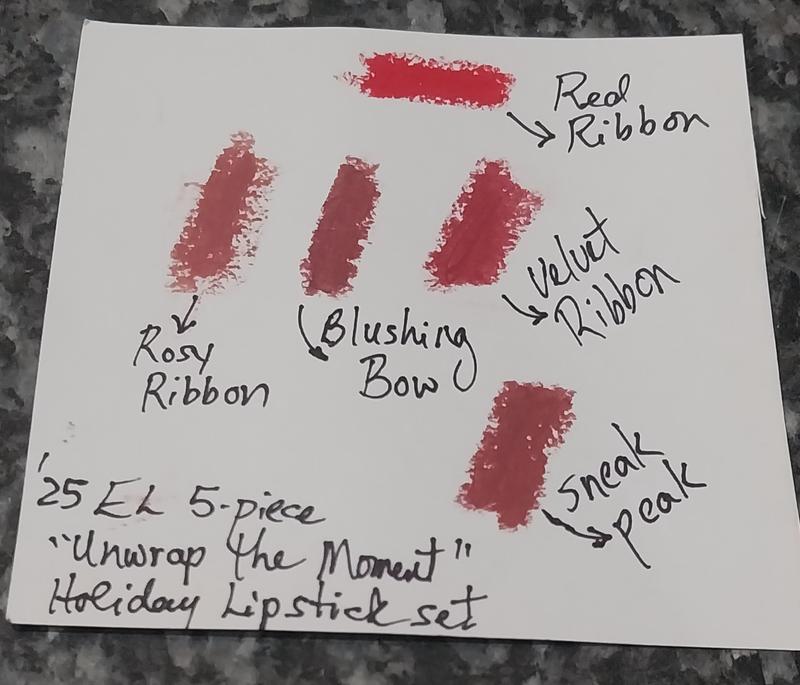 Red
Ribbon
Velvet
Ribbon
Rosy
Ribbon
Blushing
Bow
Sneak
peak
'25 EL 5-piece
"Unwrap the Moment"
Holiday Lipstick set